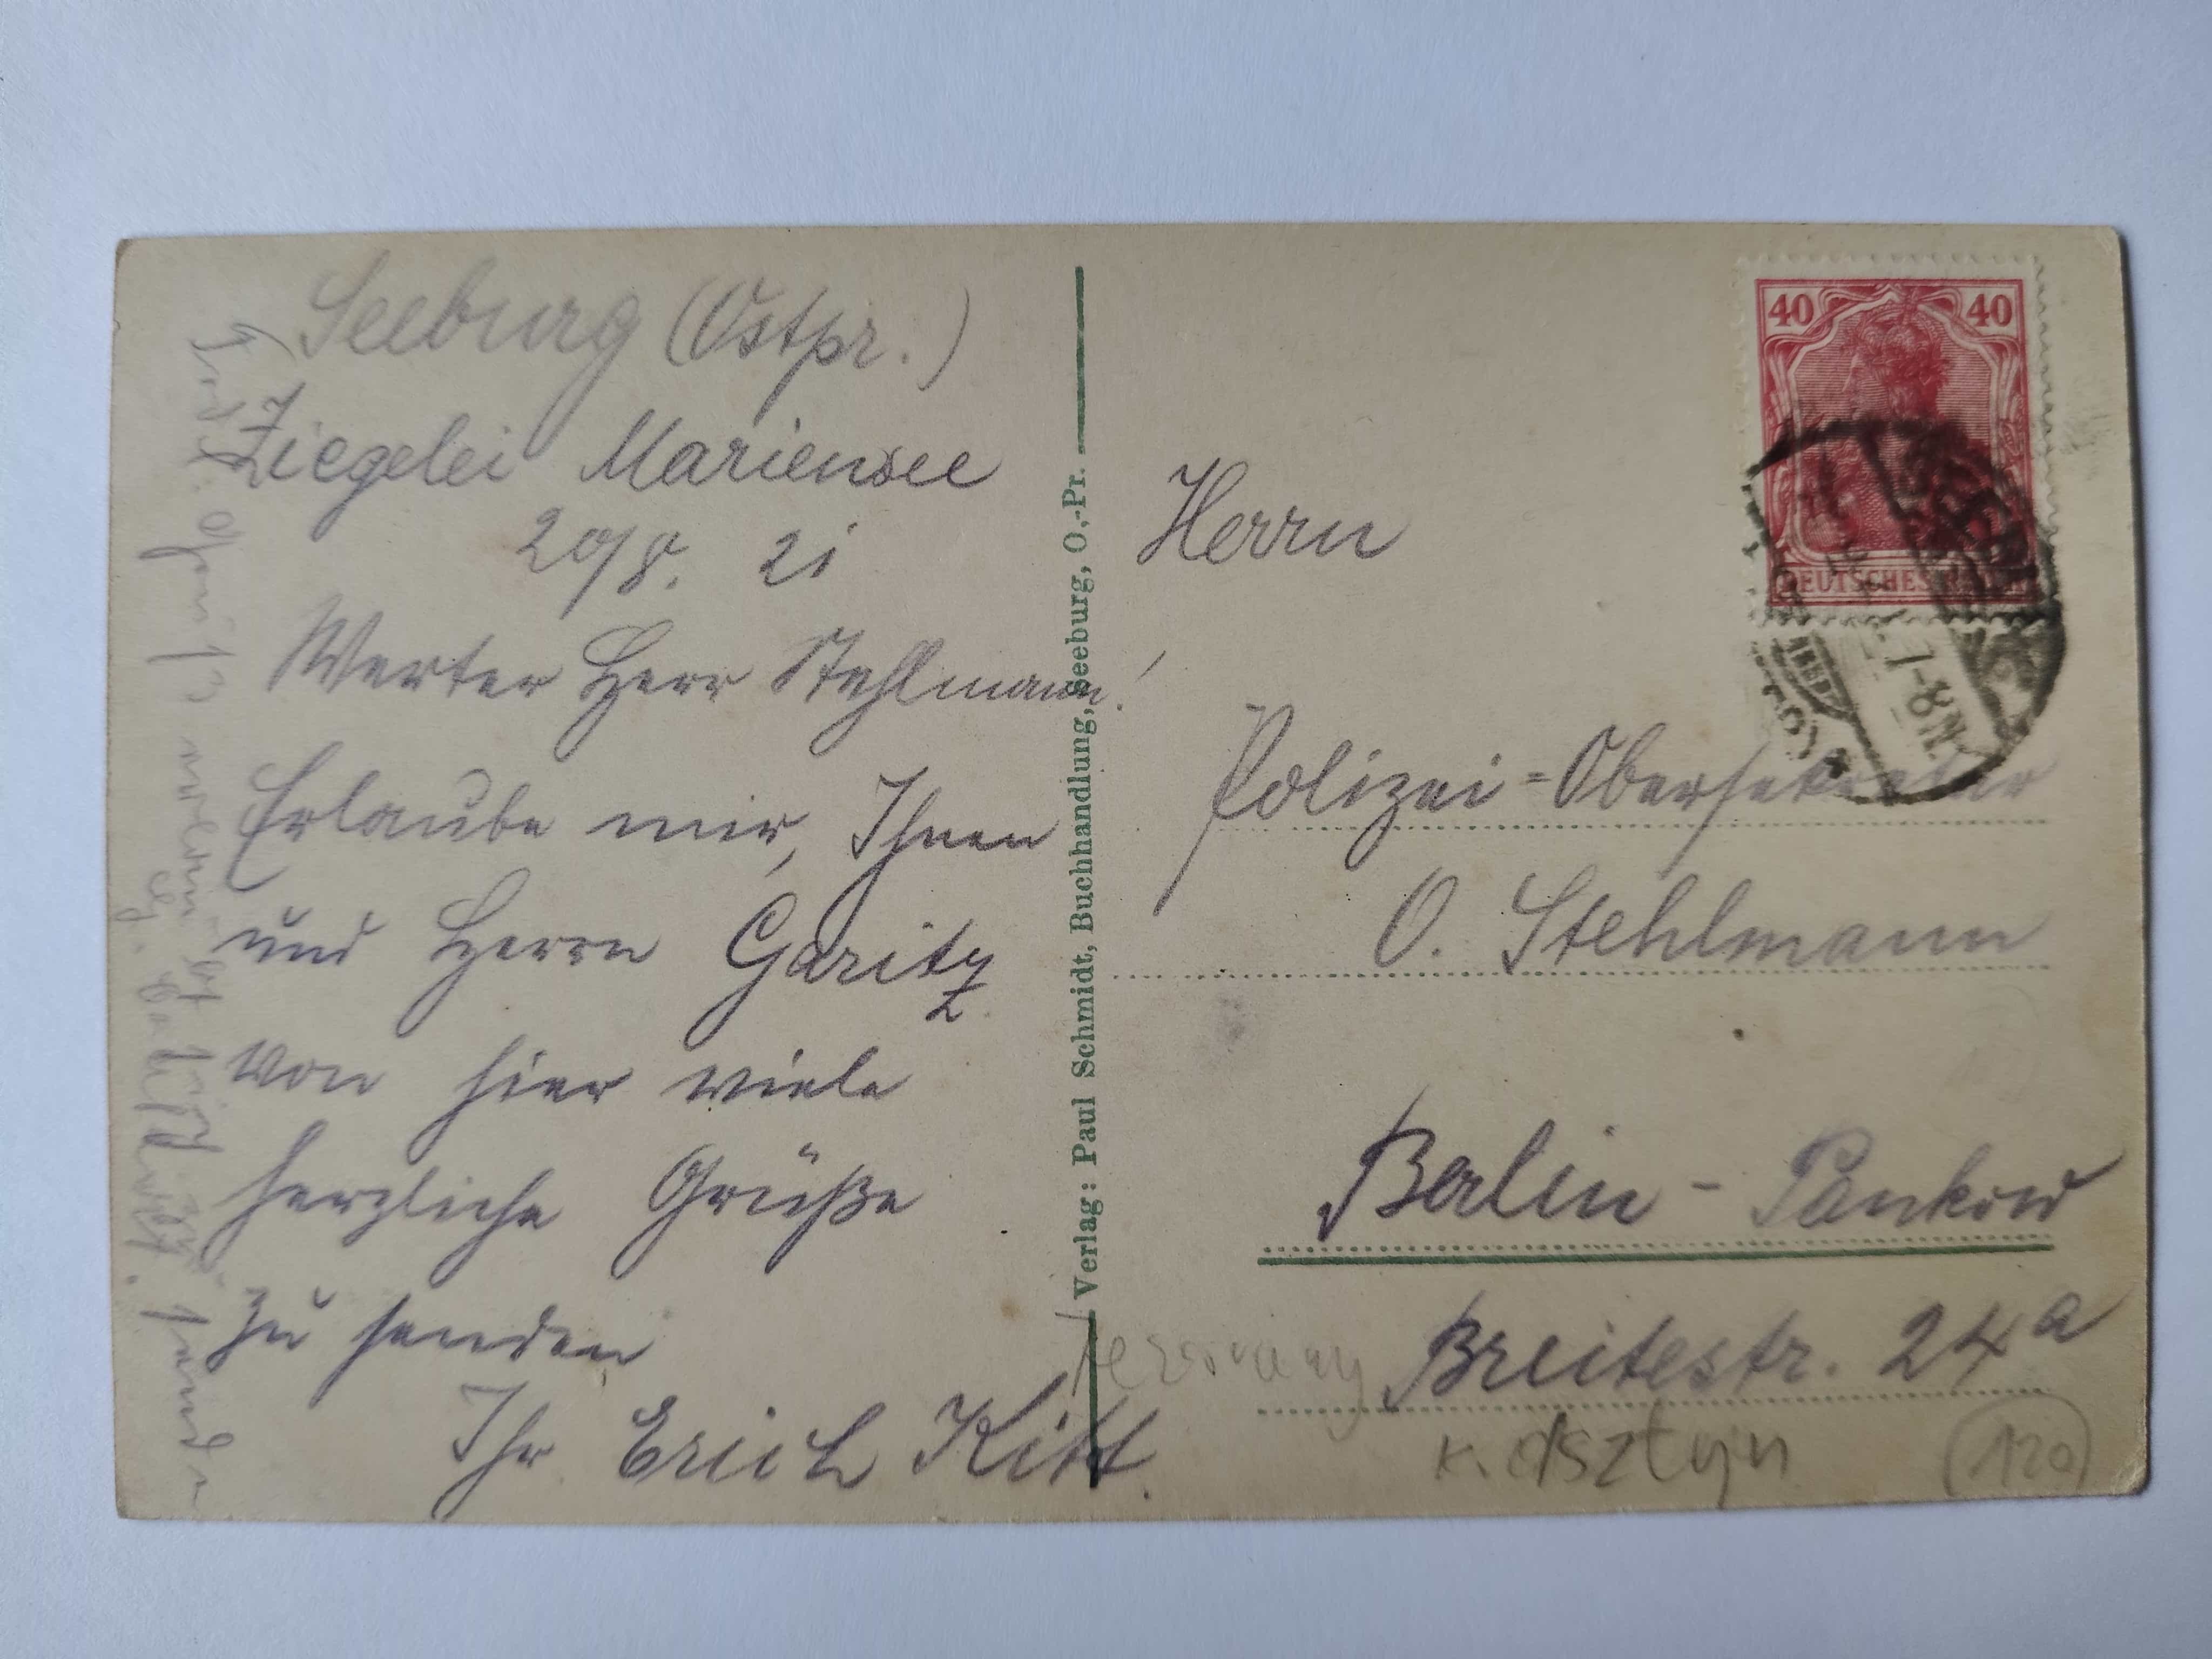 Seeburg (Ostpr.)
Ziegelei Mariensee
20/8. 21
Werter Herr Stehlmann!
Erlaube mir, Ihnen
und Herrn Garitz
von hier viele
herzliche Grüße
zu senden
Ihr Erich Kitt.
Verlag: Paul Schmidt, Buchhandlung, Seeburg, O.-Pr.
40 40
DEUTSCHES REICH
7-8 N
Herrn
Polizei=Obersekretär
O. Stehlmann
Berlin - Pankow
Breitestr. 24a
Jeziorany
k. Olsztyn
120